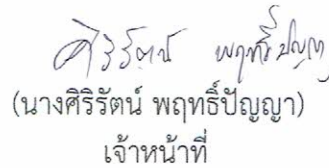 ศิริรัตน์ พฤทธิ์ปัญญา
(นางศิริรัตน์ พฤทธิ์ปัญญา)
เจ้าหน้าที่